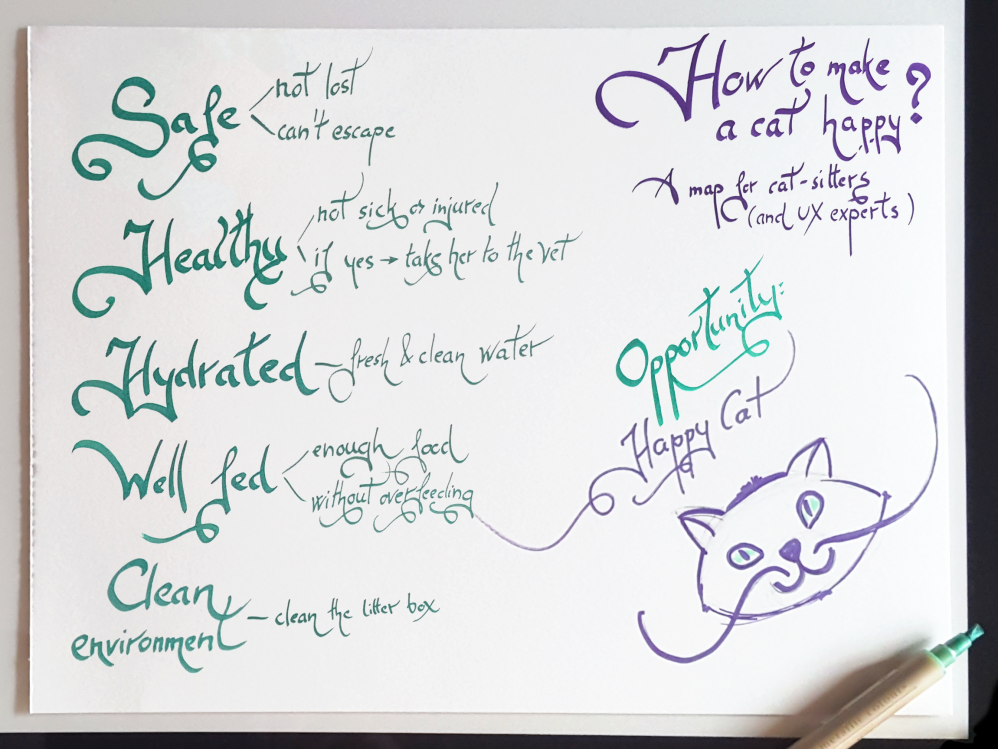 How to make
a cat happy?
A map for cat-sitters
(and UX experts)
Safe
not lost
can't escape
Healthy
not sick or injured
if yes → take her to the vet
Hydrated – fresh & clean water
Well fed
enough food
without overfeeding
Clean
environment – clean the litter box
Opportunity:
Happy Cat